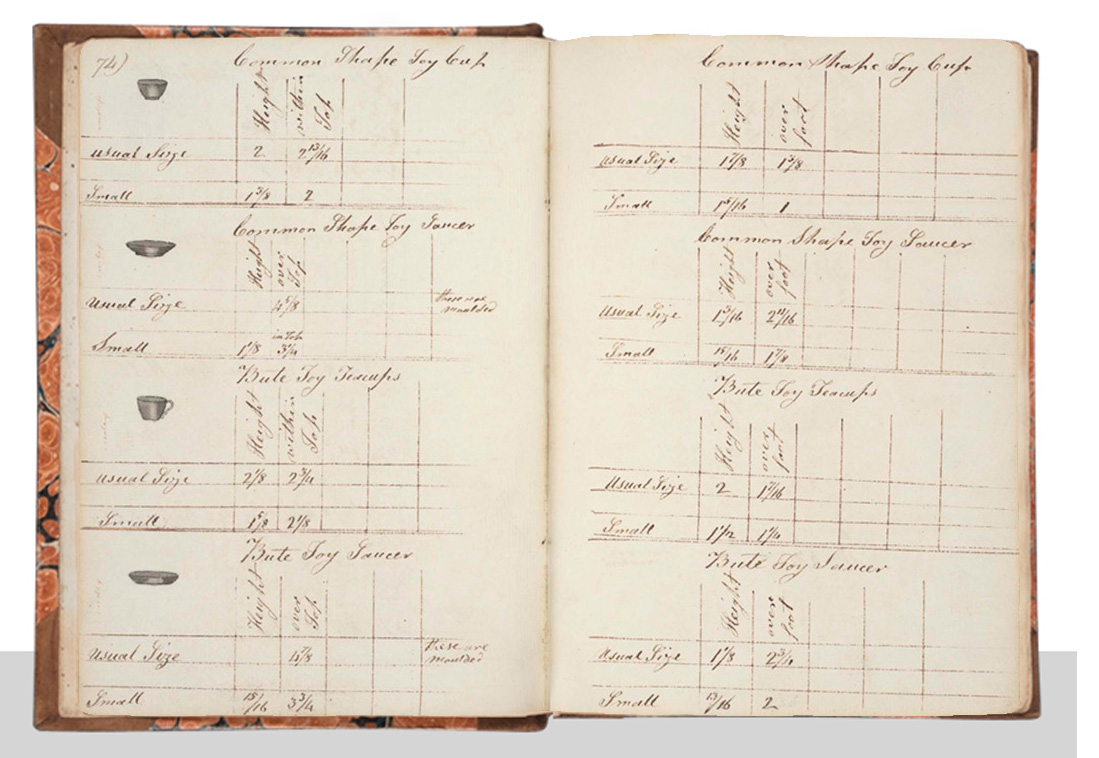 74)
Common Shape Toy Cup
Height
within Top
usual Size 2 2 13/16
Small 1 3/8 2
Common Shape Toy Saucer
Height
over Top
Usual Size 4 5/8 these are moulded
in Top
Small 1 1/8 3 3/4
Bute Toy Teacups
Height
within Top
usual Size 2 1/8 2 3/4
Small 1 5/8 2 1/8
Bute Toy Saucer
Height
over Top
Usual Size 4 7/8 these are moulded
Small 15/16 3 3/4
Common Shape Toy Cup
Height
over foot
usual Size 1 7/8 1 3/8
Small 1 5/16 1
Common Shape Toy Saucer
Height
over foot
usual Size 1 3/16 2 11/16
Small 15/16 1 7/8
Bute Toy Teacups
Height
over foot
Usual Size 2 1 7/16
Small 1 1/2 1 1/4
Bute Toy Saucer
Height
over foot
Usual Size 1 1/8 2 3/4
Small 13/16 2